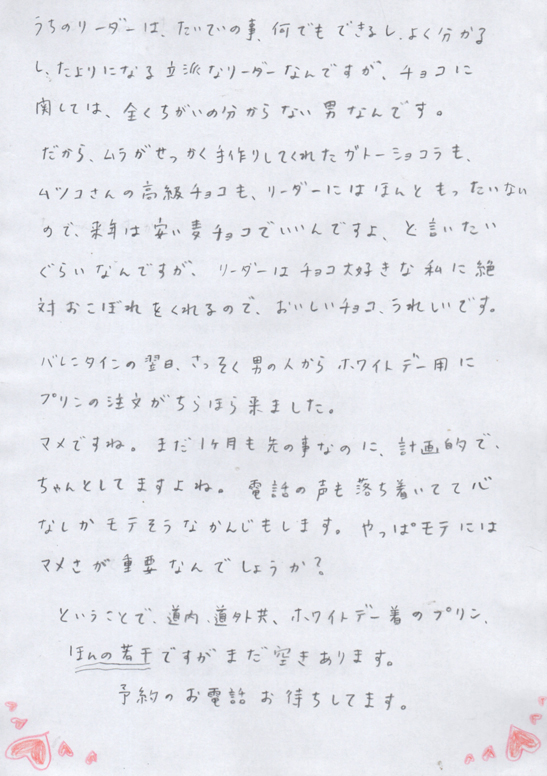 うちのリーダーは、たいていの事、何でもできるし、よく分かる
し、たよりになる立派なリーダーなんですが、チョコに
関しては、全くちがいの分からない男なんです。
だから、ムラがせっかく手作りしてくれたガトーショコラも、
ムツコさんの高級チョコも、リーダーにはほんともったいない
ので、来年は安い麦チョコでいいんですよ、と言いたい
ぐらいなんですが、リーダーはチョコ大好きな私に絶
対おこぼれをくれるので、おいしいチョコ、うれしいです。
バレンタインの翌日、さっそく男の人からホワイトデー用に
プリンの注文がちらほら来ました。
マメですね。まだ1ヶ月も先の事なのに、計画的で、
ちゃんとしてますよね。電話の声も落ち着いてて心
なしかモテそうなかんじもします。やっぱモテには
マメさが重要なんでしょうか？
ということで、道内、道外共、ホワイトデー着のプリン、
ほんの若干ですがまだ空きあります。
予約のお電話お待ちしてます。